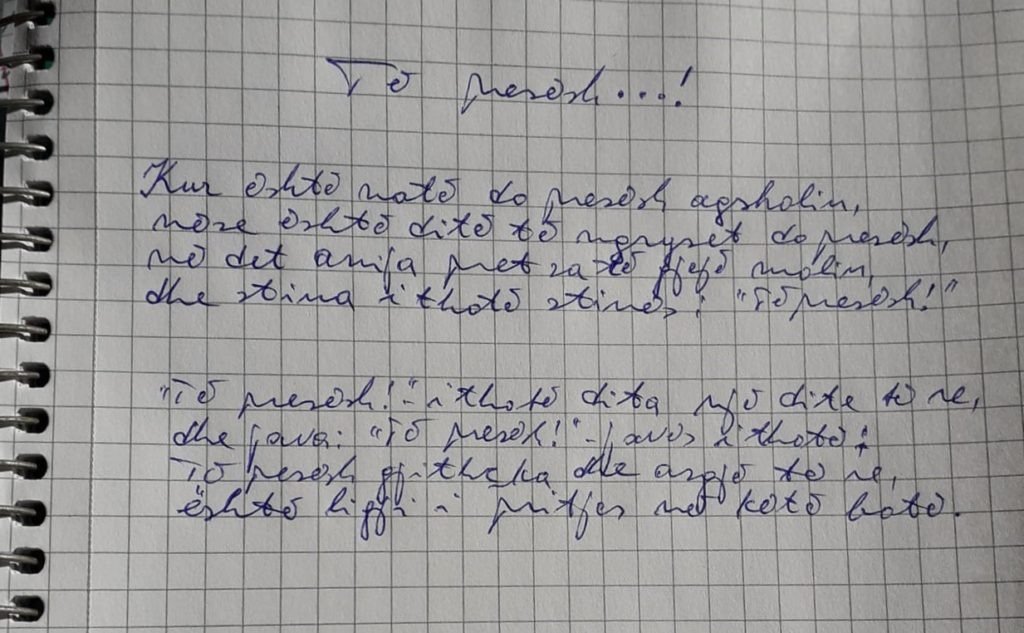 Të presësh...!
Kur është natë do presësh agsholin,
nëse është ditë të ngryset do presësh,
në det anija pret sa të gjejë molin,
dhe stina i thotë stinës: "Të presësh!"
"Të presësh!"- i thotë dita një dite të re,
dhe java: "Të presësh!"- javës i thotë;
Të presësh gjithçka dhe asgjë të re,
është ligji i pritjes në këtë botë.